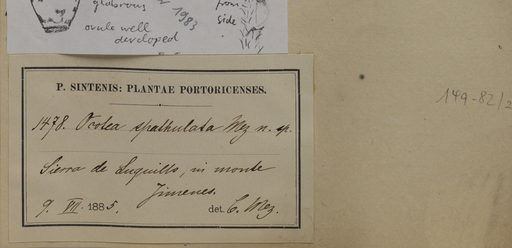 glabrous
1983
ovule well
developed
from
side
149-82/2
P. SINTENIS: PLANTAE PORTORICENSES.
1478. Ocotea spathulata Mez n. sp.
Sierra de Luquillo, in monte
Jimenes.
9. III. 1885. det. C. Mez.